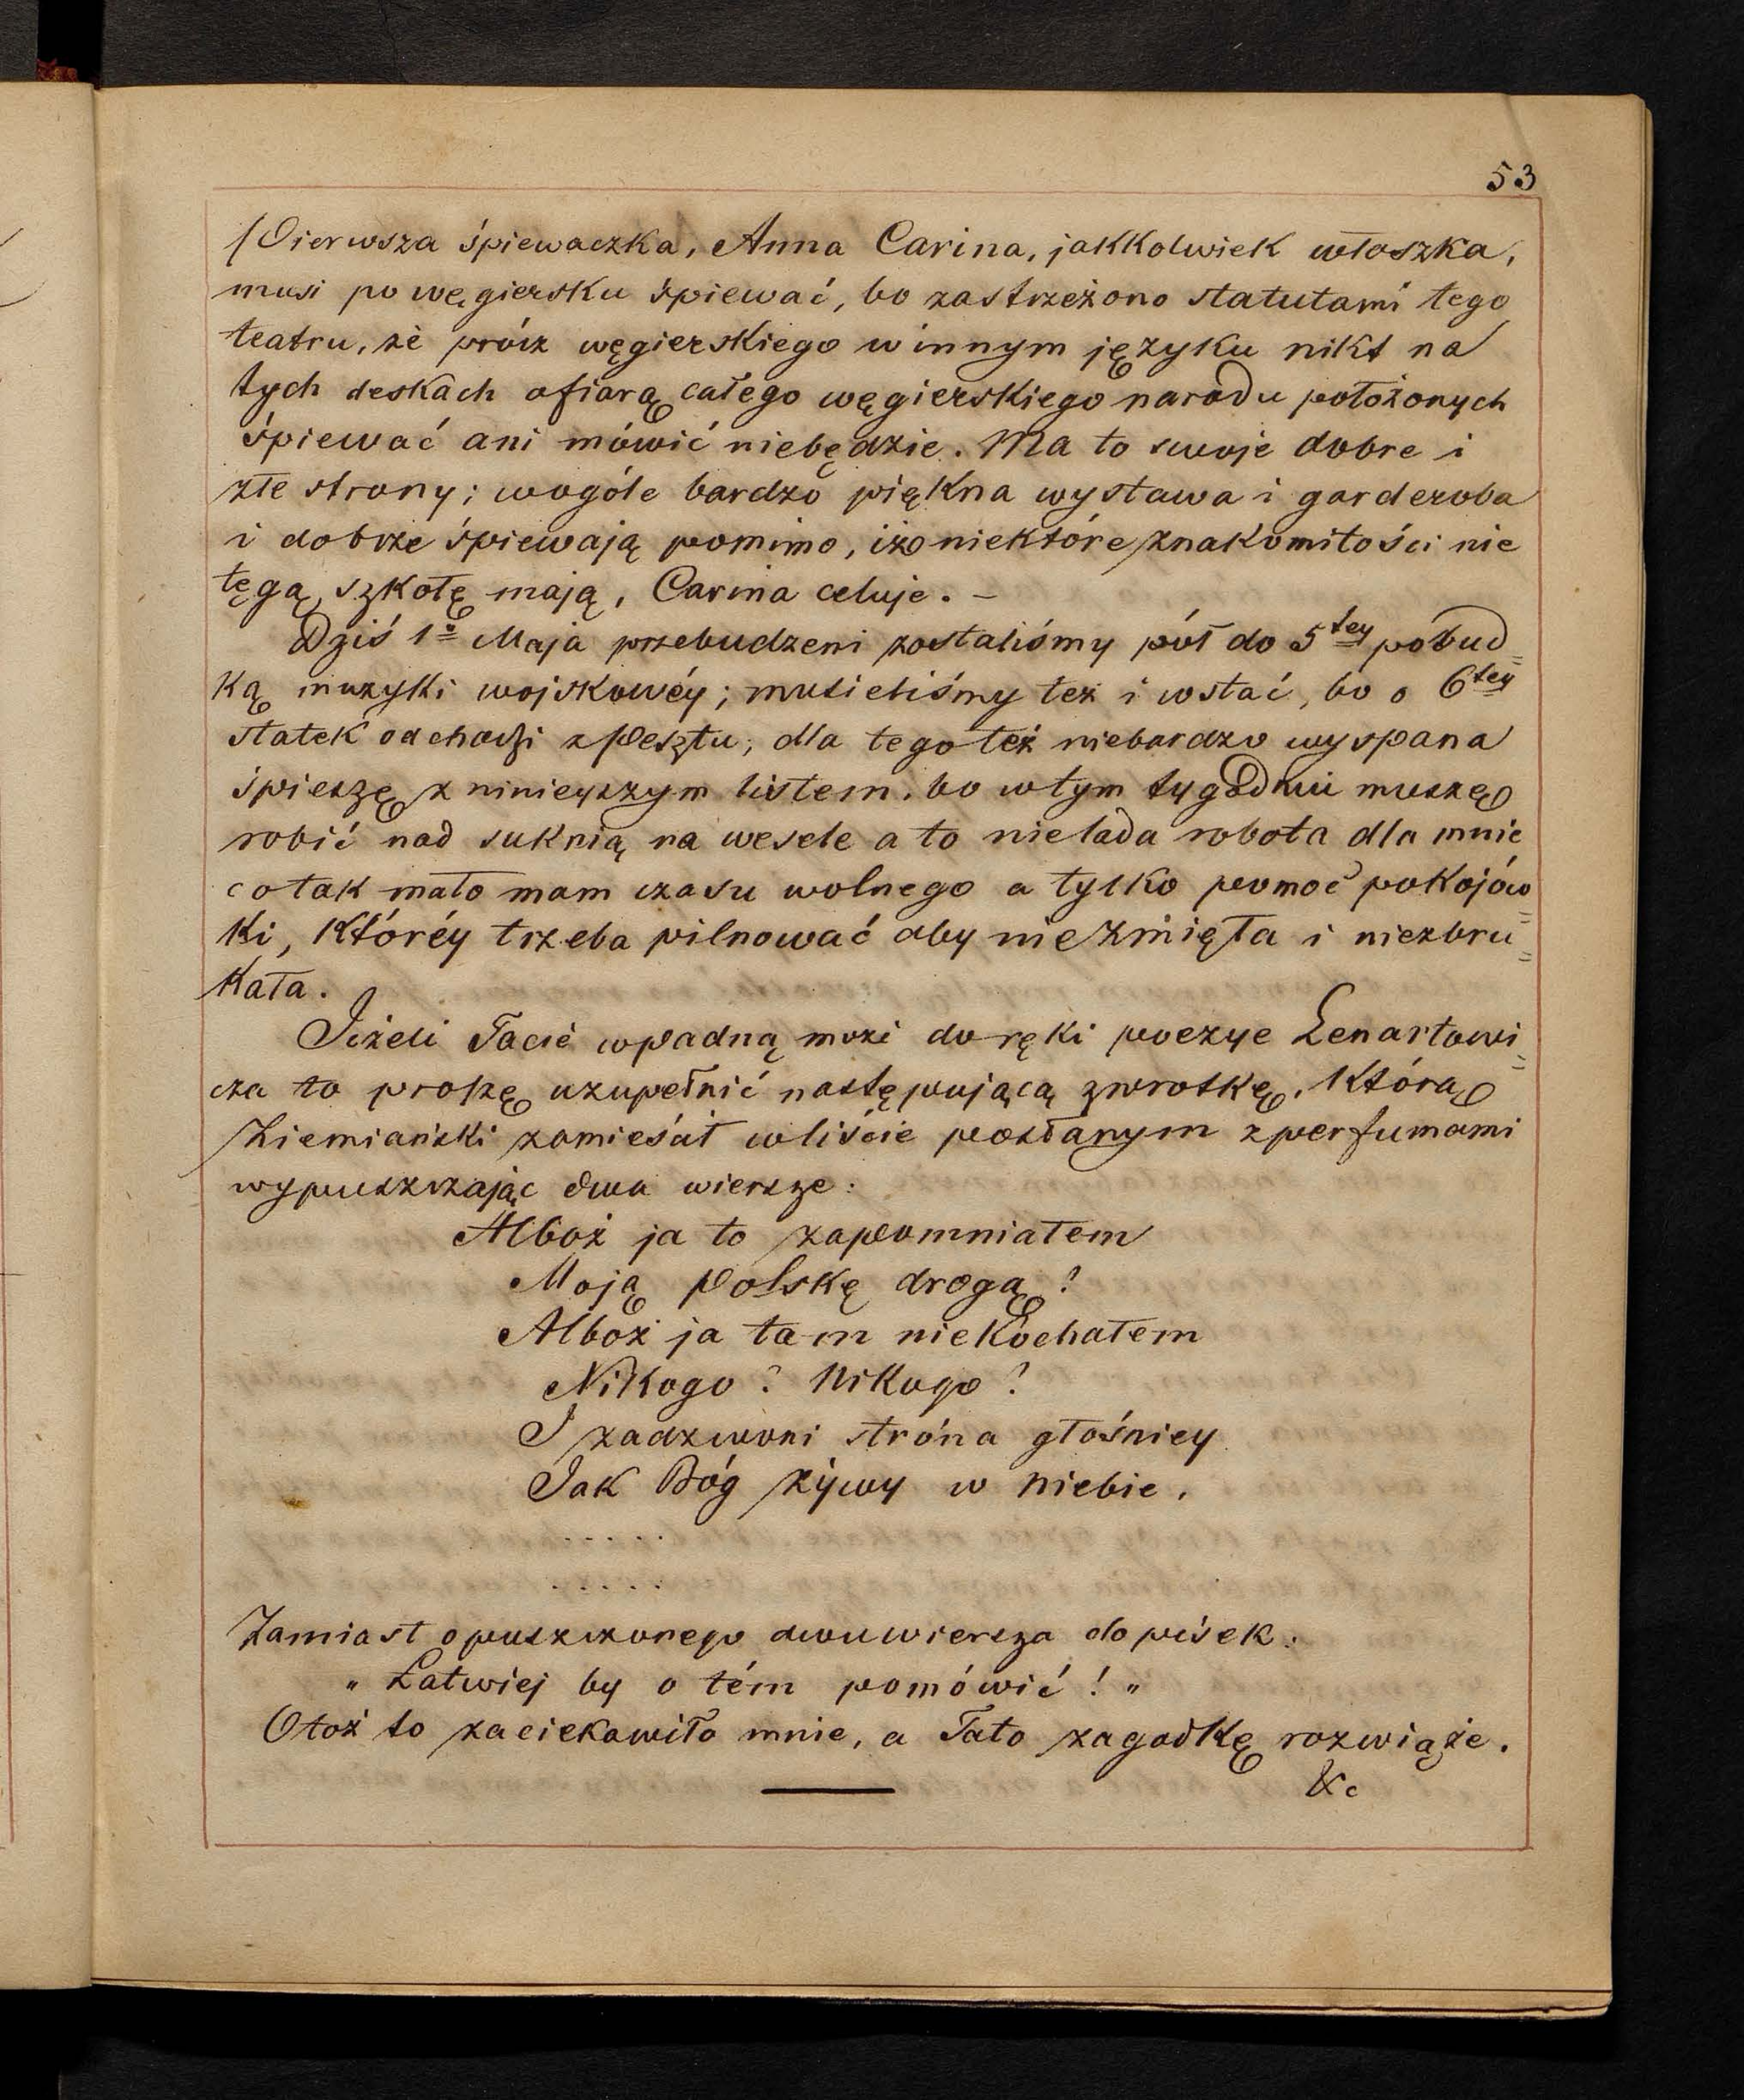 53
Pierwsza śpiewaczka, Anna Carina, jakkolwiek włoszka,
musi po węgiersku śpiewać, bo zastrzeżono statutami tego
teatru, że prócz węgierskiego w innym języku nikt na
tych deskach ofiarą całego węgierskiego narodu położonych
śpiewać ani mówić niebędzie. Ma to swoje dobre i
złe strony; wogóle bardzo piękna wystawa i garderoba
i dobrze śpiewają pomimo, iżo niektóre znakomitości nie
tęgą szkołę mają, Carina celuje. –
Dziś 1º Maja przebudzeni zostaliśmy pół do 5tey pobud=
ką muzyki wojskowéy; musieliśmy też i wstać, bo o 6tey
statek odchodzi z Pesztu; dla tego też niebardzo wyspana
śpieszę z ninieyszym listem, bo w tym tygodniu muszę
robić nad suknią na wesele a to nielada robota dla mnie
co tak mało mam czasu wolnego a tylko pomoc pokojów=
ki, któréy trzeba pilnować aby niezmięła i niezbru=
kała.
Jeżeli Tacie wpadną może do ręki poezye Lenartowi=
cza to proszę uzupełnić następującą zwrotkę, którą
Ziemiański zamieśćił w liście posłanym z perfumami
wypuszczając dwa wiersze:
Alboż ja to zapomniałem
Moją Polskę drogą?
Alboż ja tam niekochałem
Nikogo? Nikogo?
I zadzwoni stróna głośniey
Jak Bóg żywy w niebie,
. . . . .
. . . . .
Zamiast opuszczonego dwuwiersza dopisek:
„Łatwiej by o tém pomówić!„
Otoż to zaciekawiło mnie, a Tato zagadkę rozwiąże.
&c